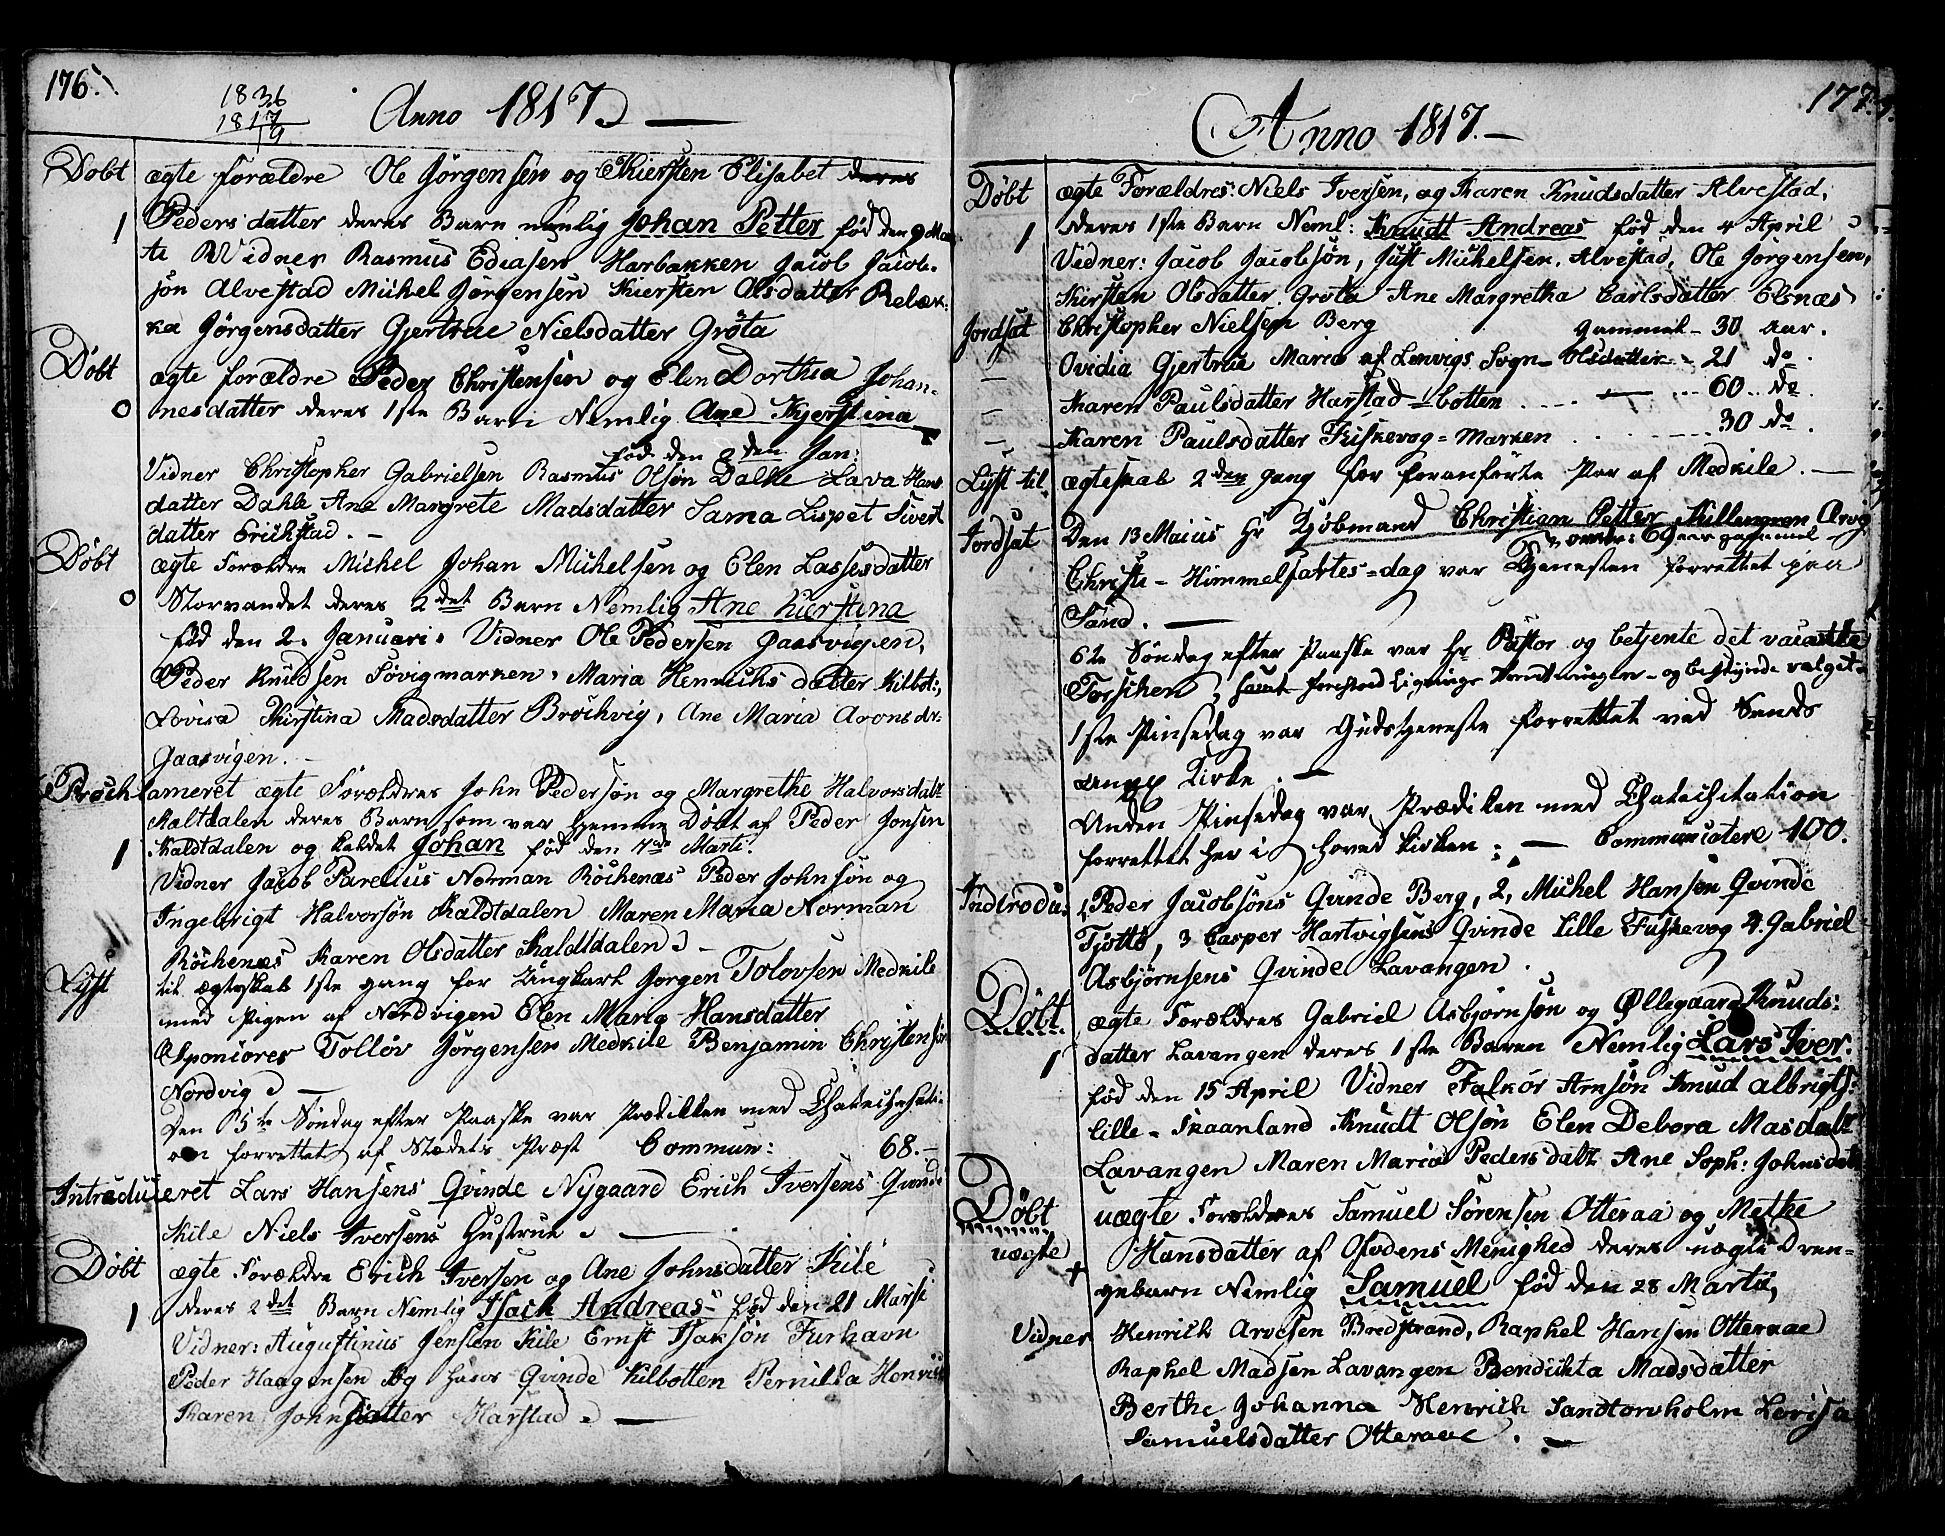 176.
1836
1817
19
Anno 1817
Døbt ægte forældre Ole Jørgensen og Kiersten Elisabet deres
1 Pedersdatter deres Barn nemlig Johan Petter fød den 9 Mar
ti Widner Rasmus Ediasen Harbakken Jacob Jacob-
søn Alvestad Michel Jørgensen Kiersten Olsdatter Rebæk-
ka Jørgensdatter Gjertrue Nielsdatter Grøta
Døbt ægte forældre Peder Christensen og Elen Dorthea Johan-
0 nesdatter deres 1ste Barn Nemlig Ane Kjerstina
fød den 2den Jan:
Vidner Christopher Gabrielsen Rasmus Olsøn Dalle Lava Hans
datter Dahle Ane Margrete Madsdatter Sama Lispet Sivert
datter Erichstad. -
Døbt ægte Forældre Michel Johan Michelsen og Elen Lassesdatter
0 Storvandet deres 2det Barn Nemlig Ane Kierstina
fød den 2. Januari. Vidner Ole Pedersen Gaasvigen,
Peder Knudsen Søvigmarken, Maria Henrichsdatter Kilbot:,
Lovisa Kirstina Madsdatter Brøchvig, Ane Maria Aronsdr.
Gaasvigen. -
Prochlameret ægte Forældres John Pedersøn og Margrethe Halvorsdatr
Kaltdalen deres Barn som var hjemme Døbt af Peder Jonsen
1 Kaldtdalen og kaldet Johan fød den 7de Marti.
Vidner Jacob Parelius Norman Röchenæs Peder Johnsøn og
Ingebrigt Halvorsøn Kaldtdalen Maren Maria Norman
Röchenæs Karen Olsdatter Kaldtdalen -
Lyst til ægteskab 1ste gang for Ungkarl Jørgen Tolovsen Medkile
med Pigen af Nordvigen Elen Maria Hansdatter
Sponsores Tolløv Jørgensen Medkile Benjamin Christensøn
Nordvig -
Den 5te Søndag efter Paaske var Prædiken med Chatechesati-
on forrettet af Stædets Præst Commun: 68. -
Introduceret Lars Hansens Qvinde Nygaard Erich Iversens Qvinde
Kile Niels Iversens Hustrue. -
Døbt ægte Forældre Erich Iversen og Ane Johnsdatter Kile
1 deres 2det Barn Nemlig Isach Andreas fød den 21 Marti
Vidner: Augustinus Jensen Kile Ernst Isaksøn Furhavn
Peder Haagensen og hans Qvinde Kilbotten Pernilla Henrich
Karen Johnsdatter Harstad. -
177.
Anno 1817. -
Døbt ægte Forældres: Niels Iversen, og Karen Knudsdatter Alvestad,
1 deres 1ste Barn Neml: Knudt Andreas fød den 4 April
Vidner: Jacob Jacobsøn, Just Michelsen. Alvestad, Ole Jørgensen,
Kirsten Olsdatter Grøta Ane Margretha Carlsdatter Elsnæs
Jordsat Christopher Nielsen Berg gammel - 30 aar.
- Ovidia Gjertrue Maria af Lenvigs Sogn - Olsdatter - 21 do.
- Karen Paulsdatter Harstad-botten .... 60 .. do
- Karen Paulsdatter Fiskevog-Marken .... 30 do.
Lyst til ægteskab 2den Gang for foranførte Par af Medkile. -
Jordsat Den 13 Maius Hr Kjøbmand Christian Petter Killengren Ørvig
69 aar gammel
Christi-Himmelfartes-dag var Tjenesten forrettet paa
Sand. -
6te Søndag efter Paaske var Hr Pastor og betjente det vacante
1ste Pinsedag var Gudstjeneste forrettet ved Sands
Kirke. -
Anden Pinsedag var Prædiken med Chatechitation
forrettet her i Hoved Kirken: - Communicatere 100.
Indtrodus 1, Peder Jacobsøns Qvinde Berg, 2, Michel Hansen Qvinde
Tjøtto, 3 Casper Hartvigsens Qvinde Lille Fuskevog 4. Gabriel
Asbjørnsens Qvinde Lavangen.
Døbt ægte Forældres Gabriel Asbjørnsøn og Øllegaard Knuds:
1 datter Lavangen deres 1ste Baren Nemlig Lars Iver.
fød den 15 April Vidner Falkór Arnsøn Knud albrigts:
Lille-Skaanland Knudt Olsøn Elen Debora Masdatr
Lavangen Maren Maria Pedersdatr Ane Soph: Johnsdatr
Døbt uægte Forældres Samuel Sørensen Otteraa og Methe
uægte + Hansdatter af Ofodens Menighed deres uægte Dren-
gebarn Nemlig Samuel fød den 28 Marti,
Vidner Henrich Arvesen Bredstrand, Raphel Hansen Otteraae
Raphel Madsen Lavangen Bendikta Madsdatter
Berthe Johanna Henrich Sandtorvholm Lovisa
Samuelsdatter Otteraae. -